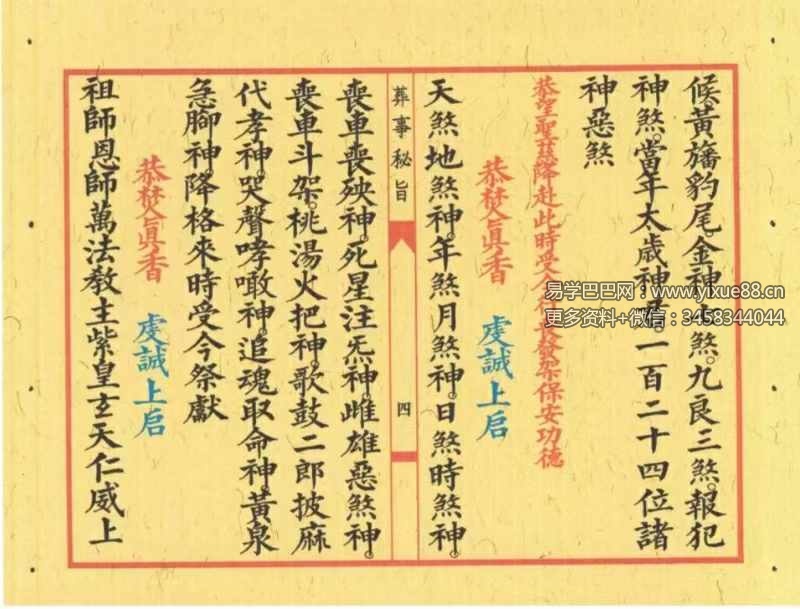 候。黃旛豹尾。金神七煞。九良三煞。報犯
神煞。當年太歲神君。一百二十四位諸
神惡煞
恭望聖慈降赴此時受今發架保安功德
恭焚眞香 虔誠上启
天煞地煞神。年煞月煞神。日煞時煞神。
葬事秘旨
四
喪車喪殃神。死星注炁神。雌雄惡煞神。
喪車斗架。桃湯火把神。歌鼓二郎披麻
代孝神。哭聲哮噉神。追魂取命神。黃泉
急腳神。降格來時受今祭獻
恭焚眞香 虔誠上启
祖師恩師萬法教主紫皇玄天仁威上
易学巴巴网：www.yixue88.cn
更多资料+微信：3458344044